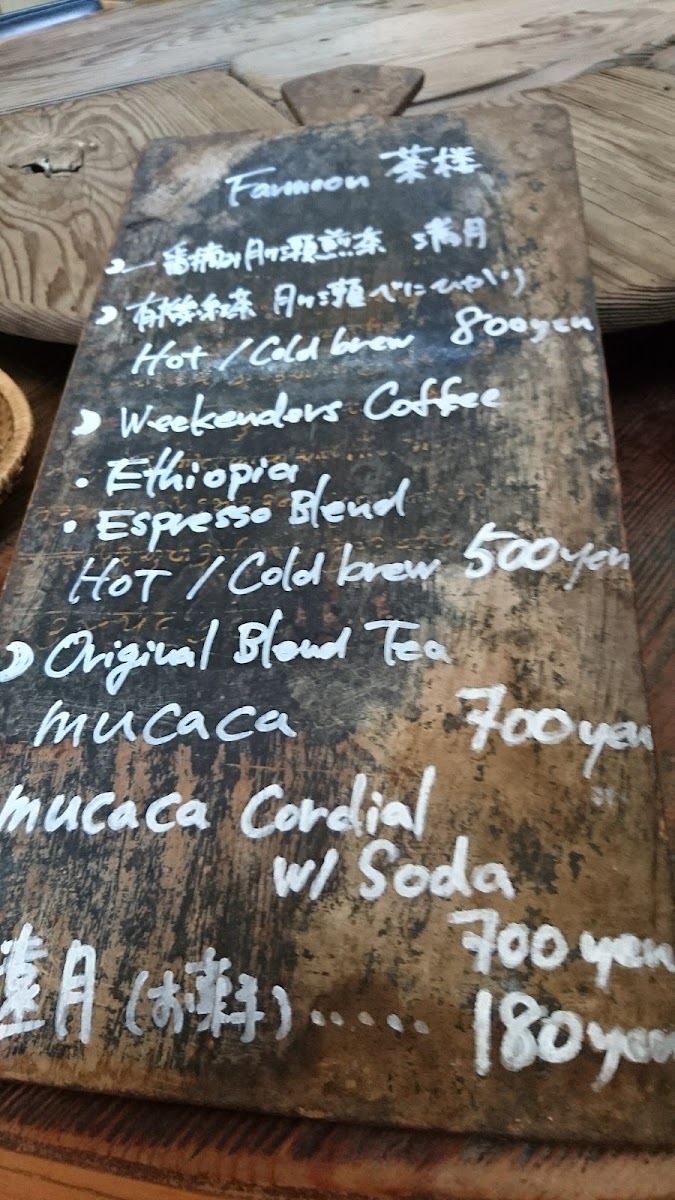 Farmoon 茶楼
一番摘み月ヶ瀬煎茶 満月
有機紅茶 月ヶ瀬べにひかり
Hot / Cold brew 800yen
Weekenders Coffee
・Ethiopia
・Espresso Blend
HoT / Cold brew 500yen
Original Blend Tea
mucaca 700yen
mucaca Cordial
w/ Soda
700yen
遠月(お菓子)..... 180yen